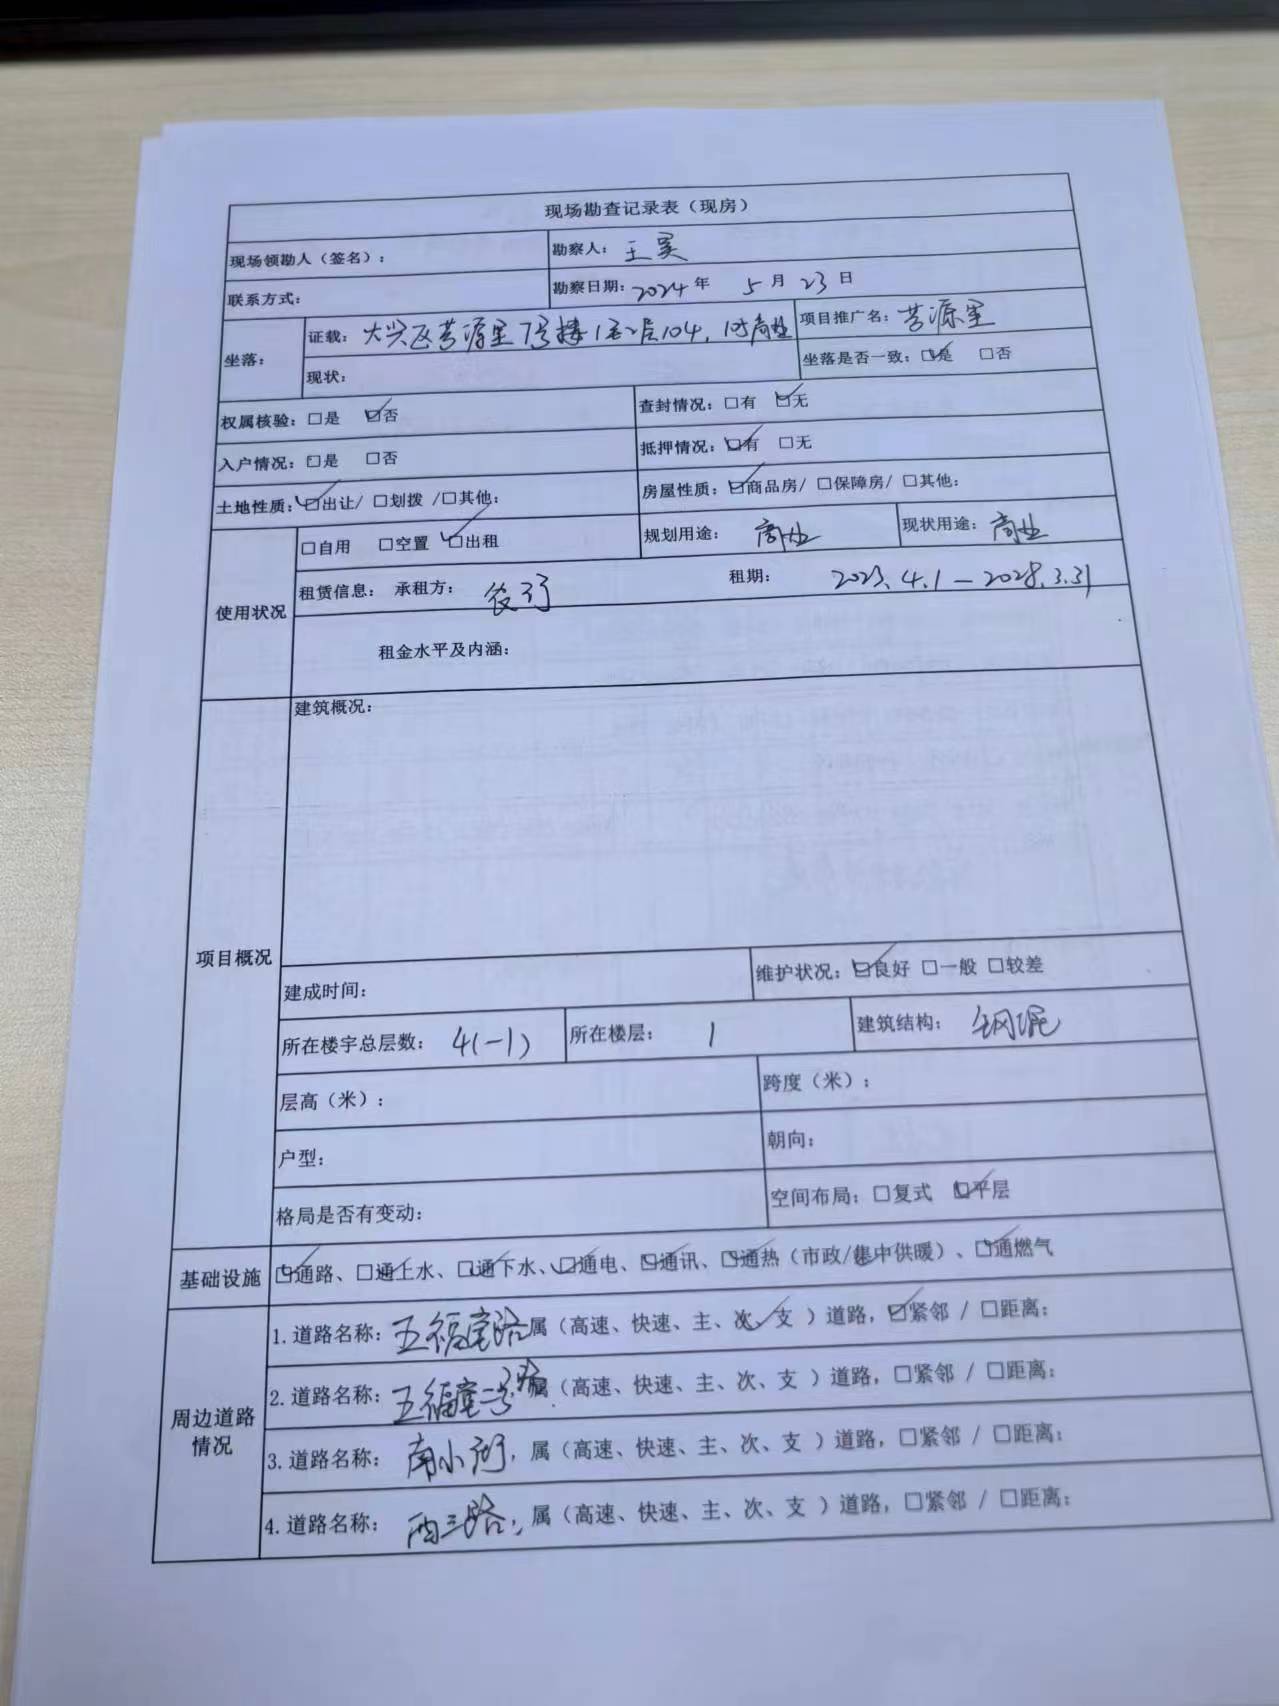 现场勘查记录表（现房）
现场领勘人（签名）： 勘察人：王昊
联系方式： 勘察日期：2024年 5月23日
坐落： 证载：大兴区 源里7号楼1至2层104, 商业 项目推广名： 源里
现状： 坐落是否一致：☑是 □否
权属核验：□是 ☑否 查封情况：□有 ☑无
入户情况：□是 □否 抵押情况：☑有 □无
土地性质：☑出让/ □划拨 /□其他： 房屋性质：☑商品房/ □保障房/ □其他：
使用状况 □自用 □空置 ☑出租 规划用途：商业 现状用途：商业
租赁信息： 承租方：农行 租期：2023.4.1—2028.3.31
租金水平及内涵：
项目概况 建筑概况：
建成时间： 维护状况：☑良好 □一般 □较差
所在楼宇总层数：4(-1) 所在楼层：1 建筑结构：钢混
层高（米）： 跨度（米）：
户型： 朝向：
格局是否有变动： 空间布局：□复式 ☑平层
基础设施 ☑通路、☑通上水、☑通下水、☑通电、☑通讯、☑通热（市政/集中供暖）、☑通燃气
周边道路情况 1.道路名称：五福堂路属（高速、快速、主、次、支 ）道路，☑紧邻 / □距离；
2.道路名称：五福堂二号路,属（高速、快速、主、次、支 ）道路，□紧邻 / □距离；
3.道路名称：南小河，属（高速、快速、主、次、支 ）道路，□紧邻 / □距离；
4.道路名称：西三路，属（高速、快速、主、次、支 ）道路，□紧邻 / □距离；